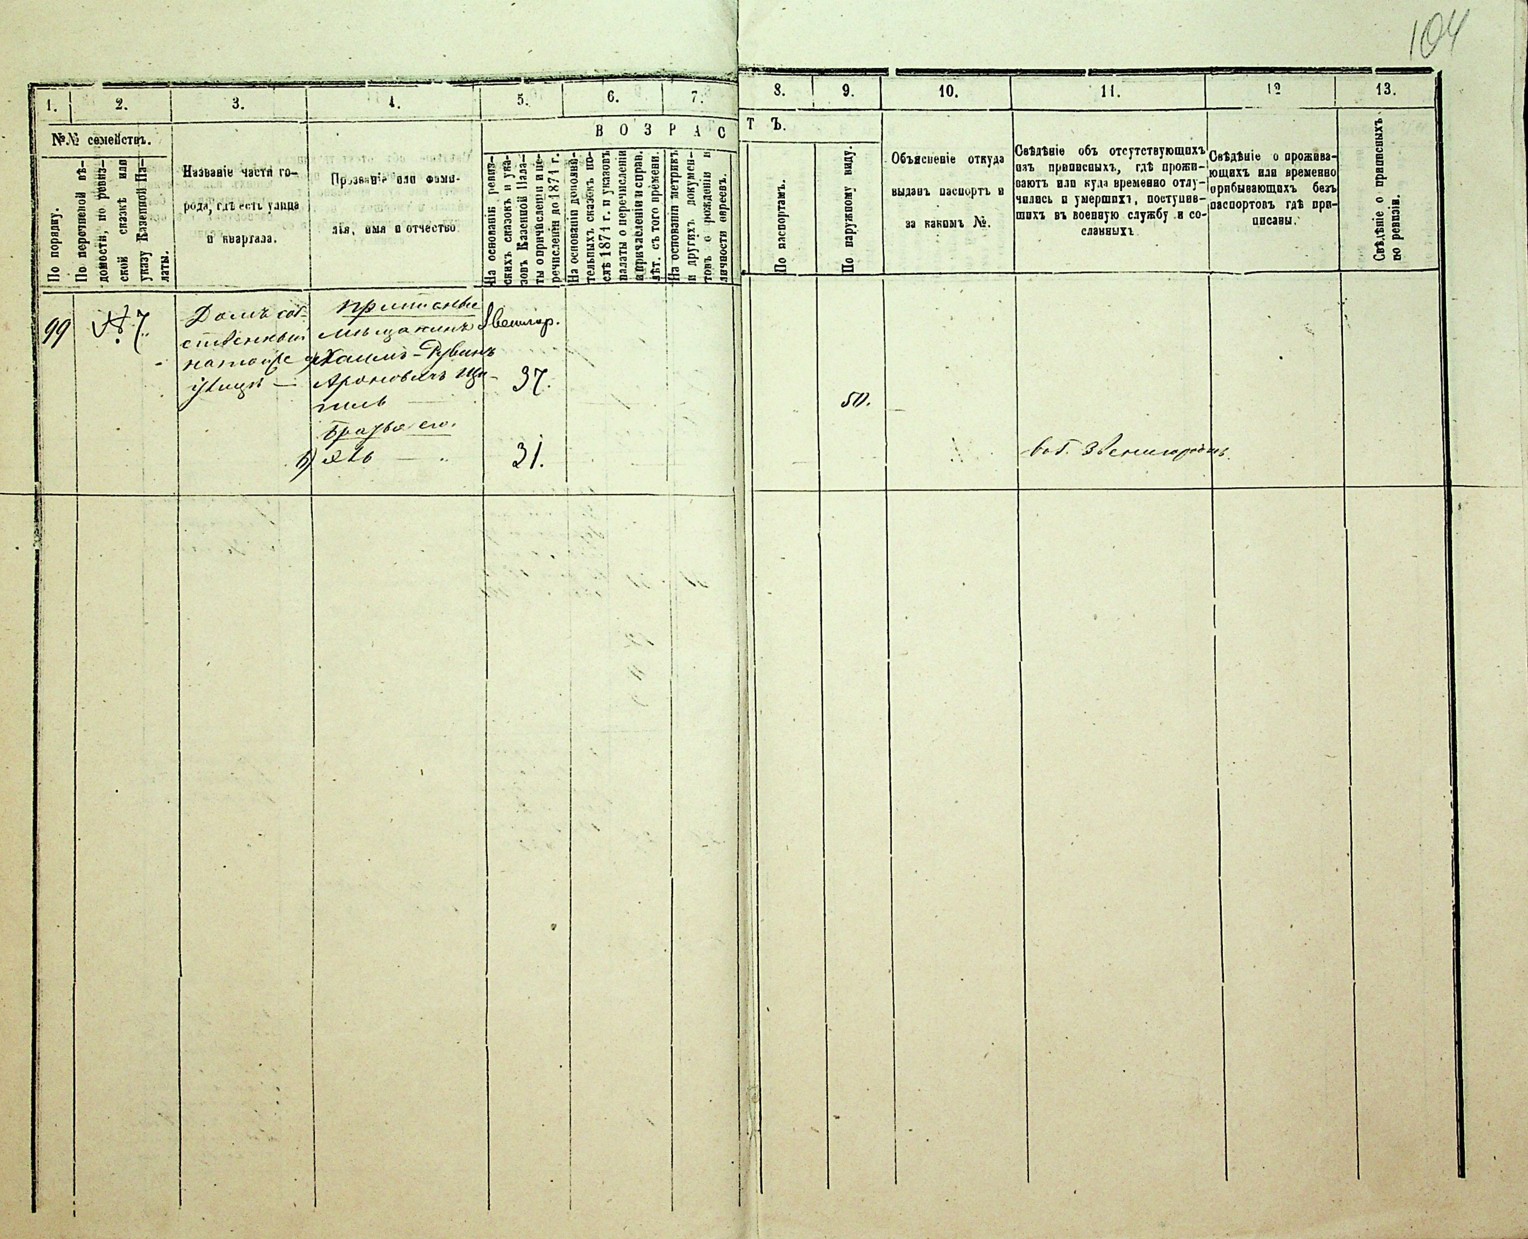 104
1. 2. 3. 4. 5. 6. 7. 8. 9. 10. 11. 12 13.
№№ семействъ.
По порядку.
По перечневой вѣ-
домости, по ревиз-
ской сказкѣ или
указу Казенной Па-
латы.
Названіе части го-
рода, гдѣ есть улица
и квартала.
Прозваніе или фами-
лія, имя и отчество
ВОЗРАСТЪ.
На основаніи ревиз-
скихъ сказокъ и ука-
зовъ Казенной Пала-
ты о причисленіи и пе-
речисленіи до 1874 г.
На основаніи дополни-
тельныхъ сказокъ по-
слѣ 1874 г. и указовъ
палаты о перечисленіи
и причисленіи и справ.
лѣт. съ того времени.
На основаніи метрикъ
и другихъ докумен-
товъ о рожденіи и
личности евреевъ.
По паспортамъ.
По наружному виду.
Объясненіе откуда
выданъ паспортъ и
за какимъ №.
Свѣдѣніе объ отсутствующихъ
изъ приписныхъ, гдѣ прожи-
ваютъ или куда временно отлу-
чились и умершихъ, поступив-
шихъ въ военную службу и со-
сланныхъ
Свѣдѣніе о прожива-
ющихъ или временно
прибывающихъ безъ
паспортовъ гдѣ при-
писаны.
Свѣдѣніе о приписныхъ
по ревизіи.
99 № 7. Домъ соб-
ственный
улицѣ —
мѣщанинъ
Хаимъ-Рувинъ
Ароновичъ
37.
50.
Братья его.
31.